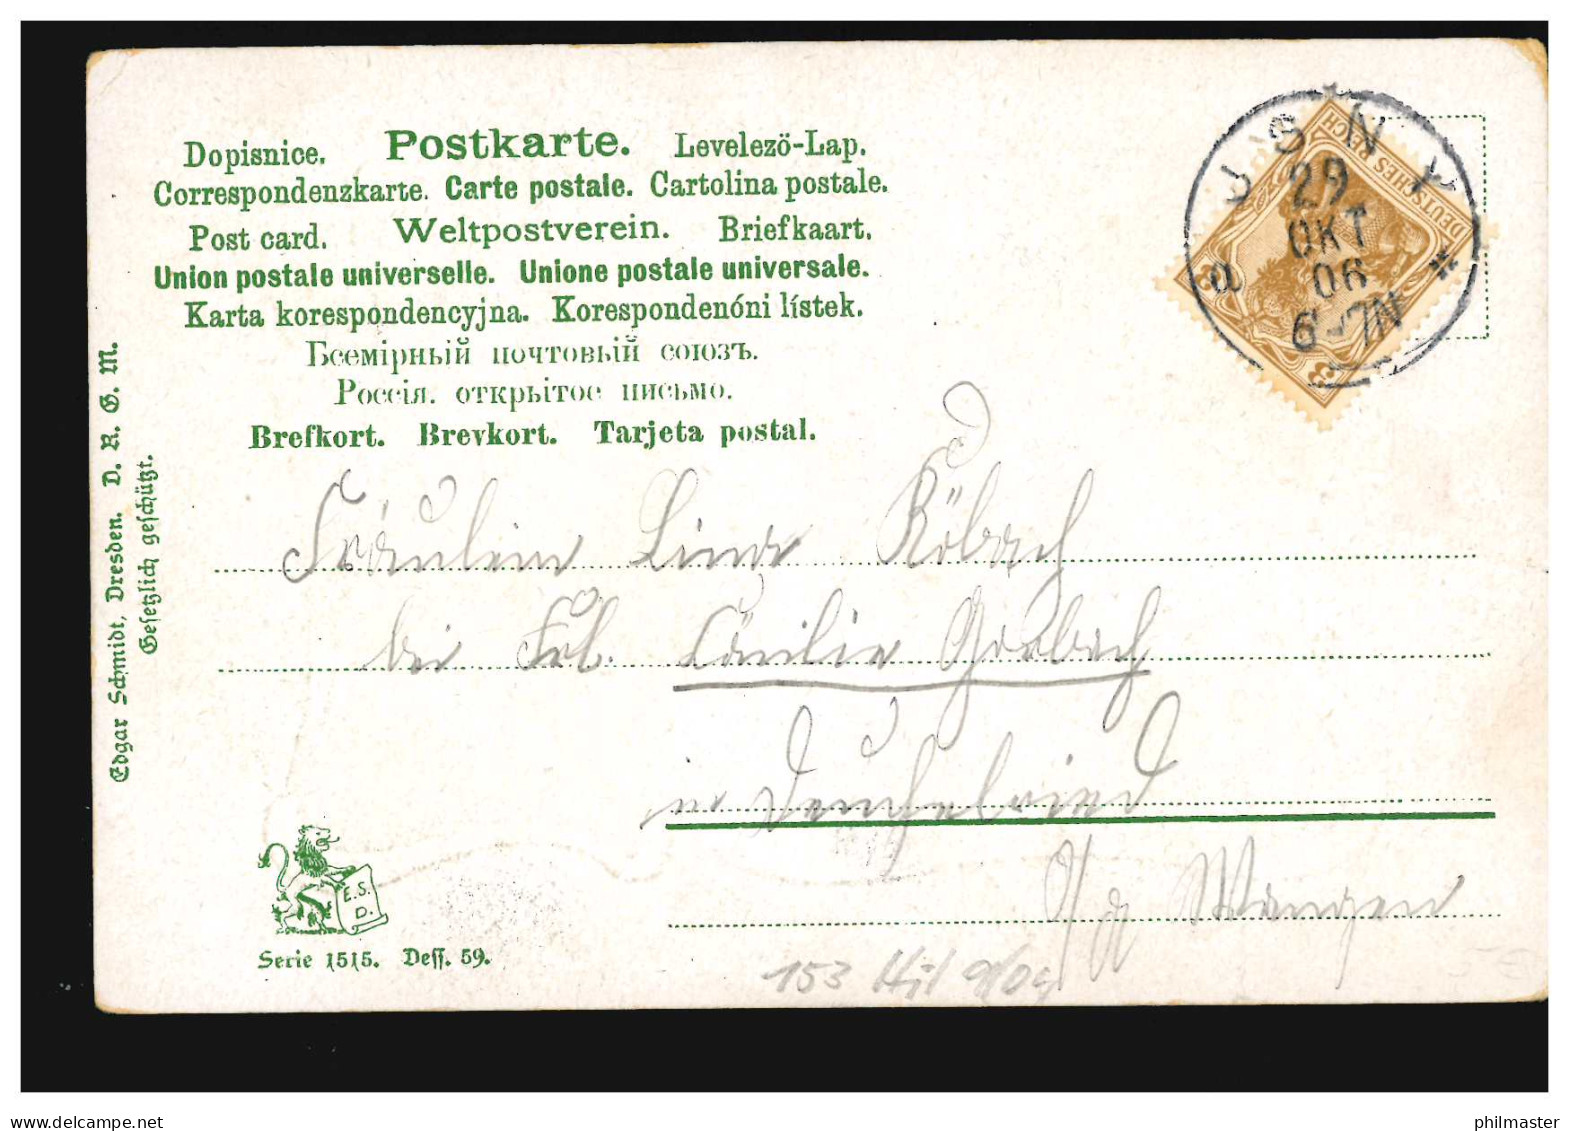 Dopisnice. Postkarte. Levelezö-Lap.
Correspondenzkarte. Carte postale. Cartolina postale.
Post card. Weltpostverein. Briefkaart.
Union postale universelle. Unione postale universale.
Karta korespondencyjna. Korespondenóni lístek.
Всемірный почтовый союзъ.
Россія. открытое письмо.
Brefkort. Brevkort. Tarjeta postal.
Edgar Schmidt, Dresden. D. R. G. M.
Gesetzlich geschützt.
DEUTSCHES REICH
ISNY
29
OKT
06
6-7N
a *
Fräulein Lina Röbach
bei Frl. Cäcilie
in Deuchelried
O/a Wangen
E.S.
D.
Serie 1515. Dess. 59.
153
www.delcampe.net
philmaster